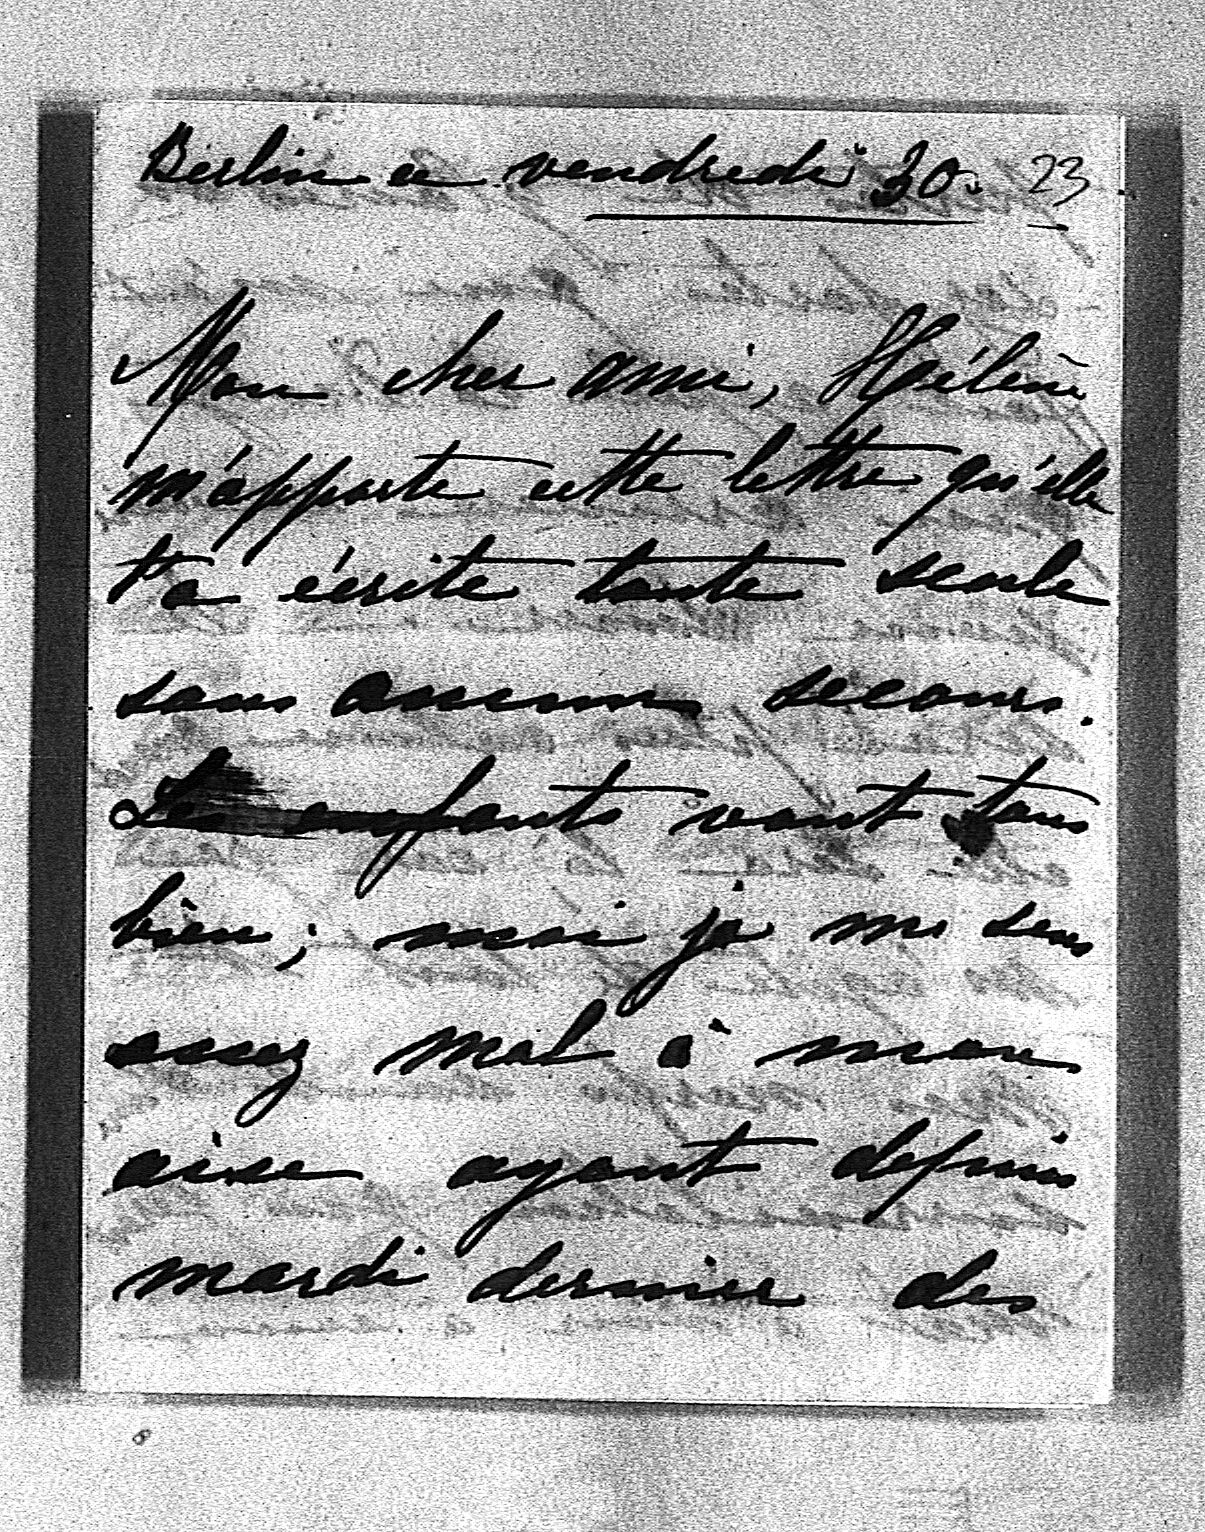 Berlin ce vendredi 30. 23
Mon cher ami, Hélène
m'apporte cette lettre qu'elle
t'a écrite toute seule
sans aucuns secours.
Les enfants vont tous
bien; moi je me sens
assez mal à mon
aise ayant depuis
mardi dernier des